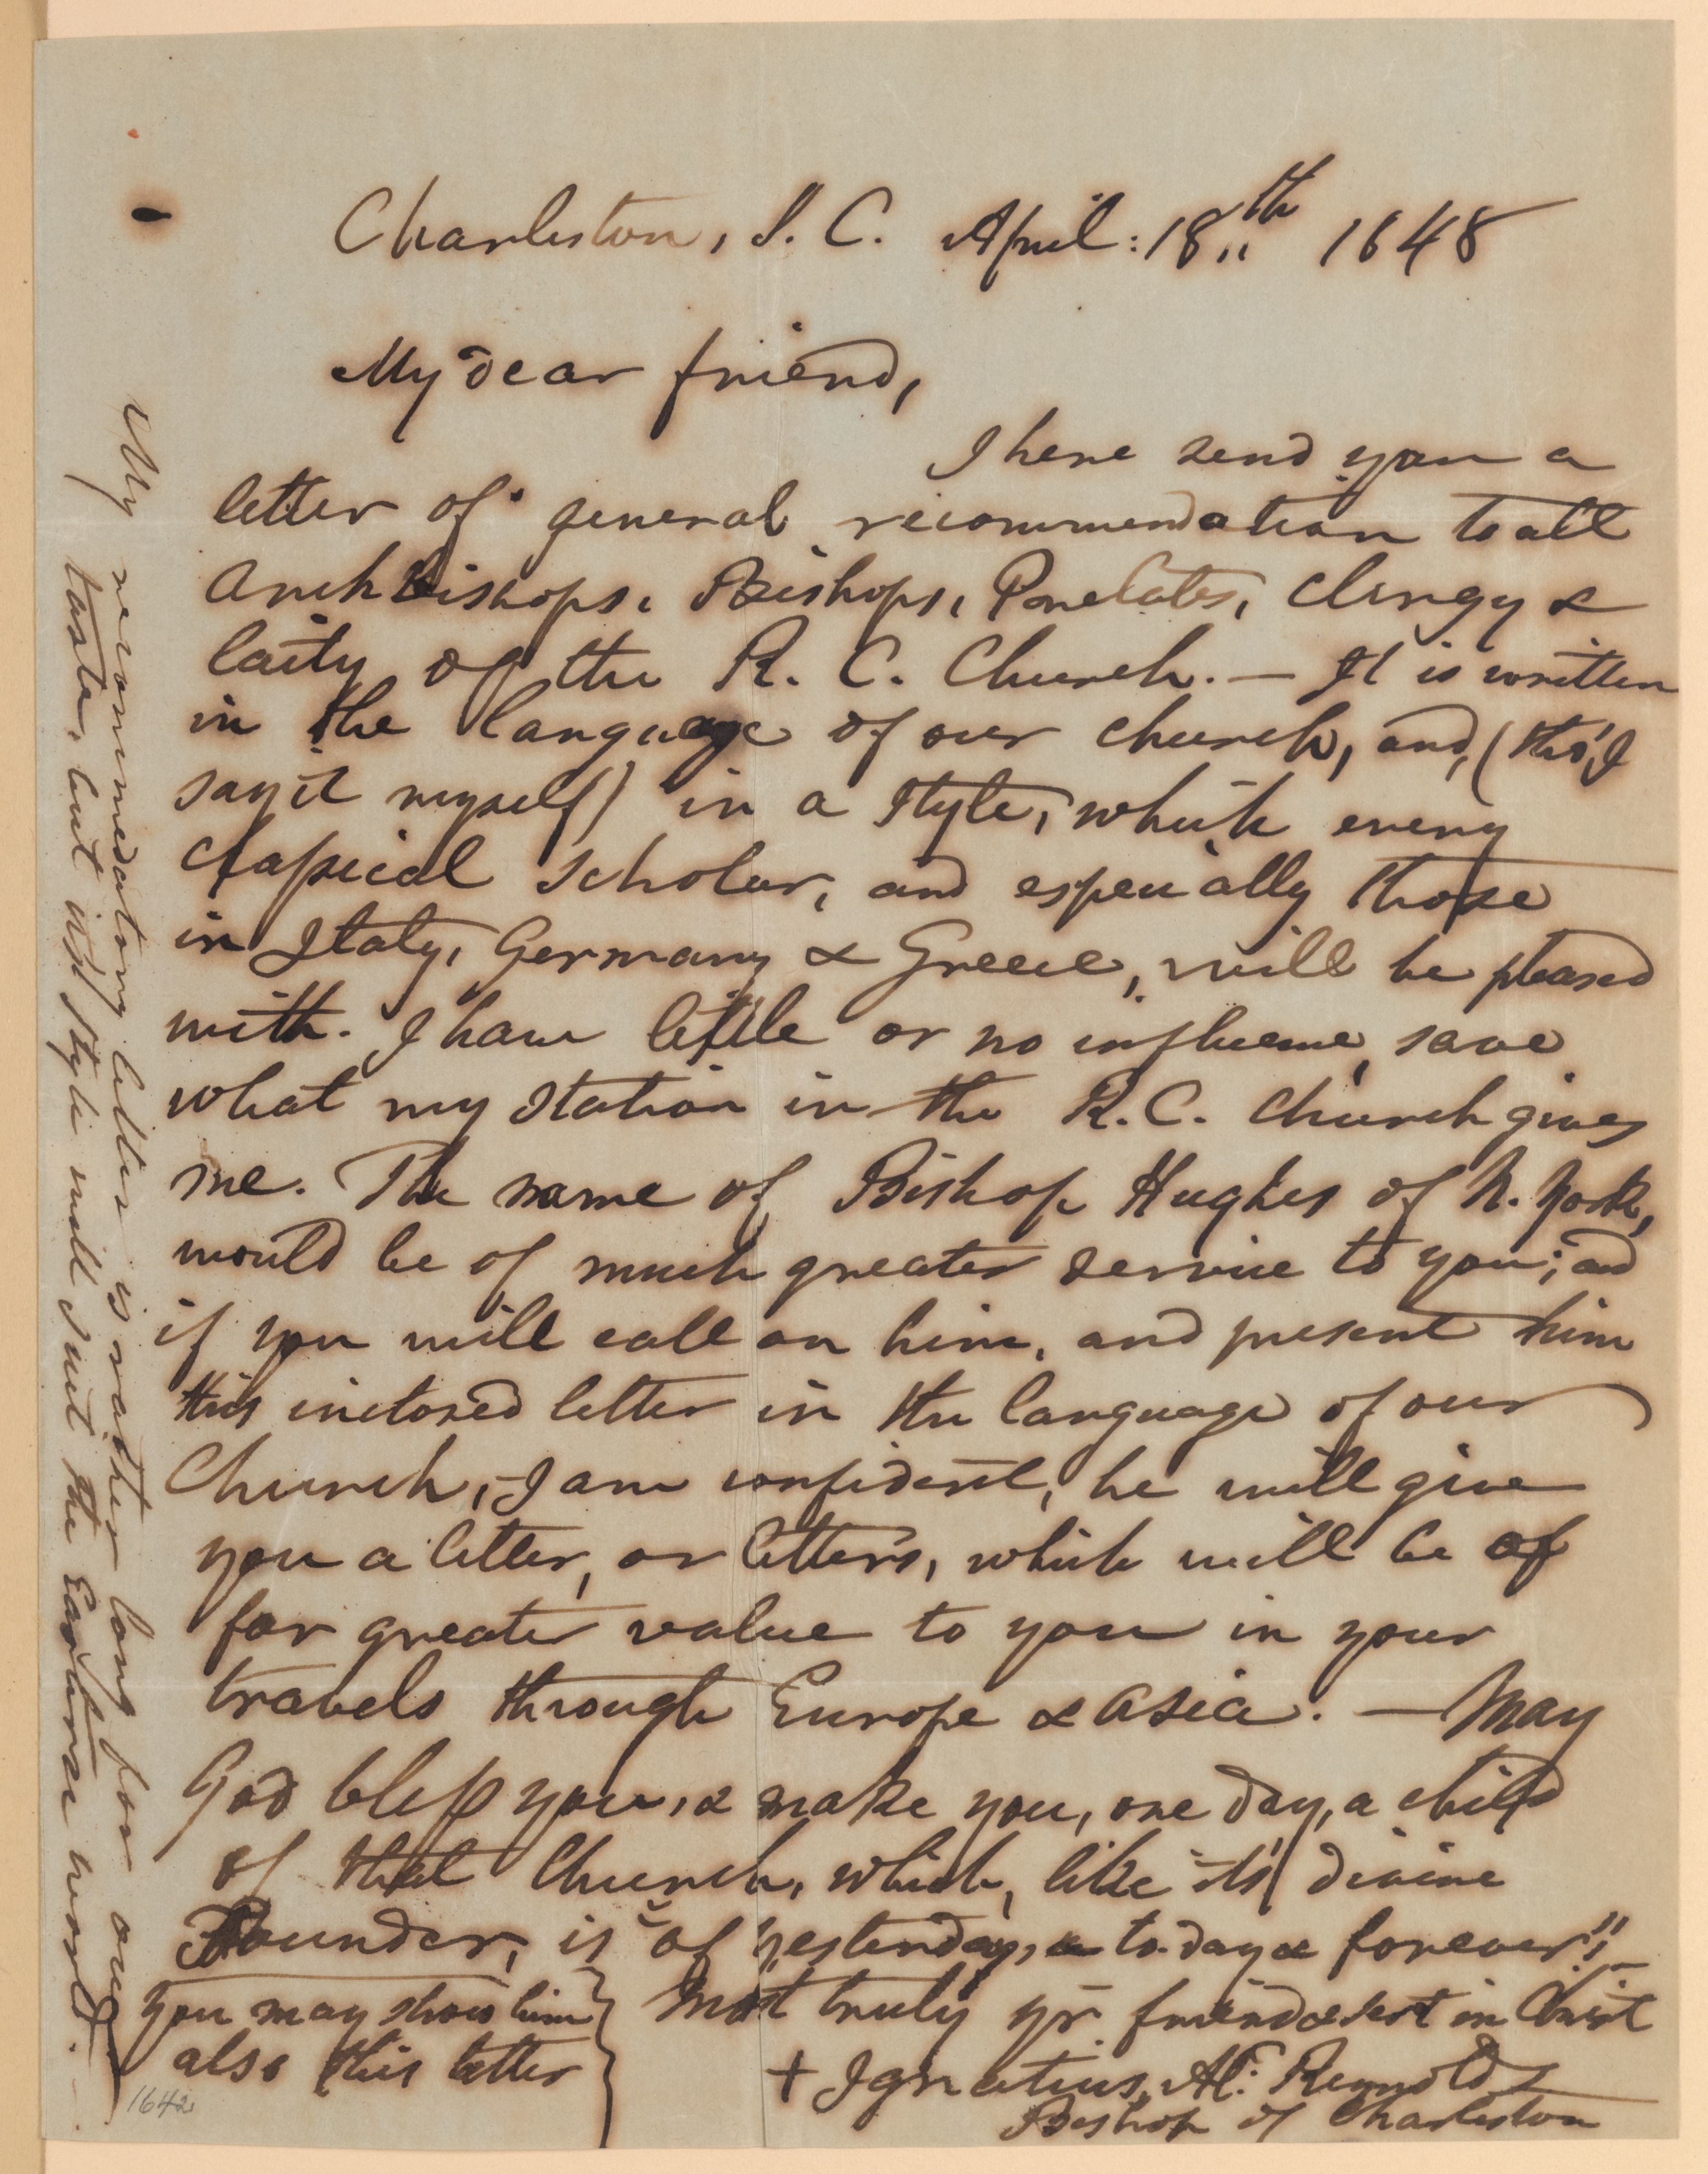 Charleston, S. C. April: 18th 1848
My dear friend,
I here send you a
letter of general recommendation to all
Archbishops, Bishops, Prelates, Clergy &
laity of the R. C. Church. — It is written
in the language of our church, and, (tho' I
say it myself) in a style, which every
classical scholar, and especially those
in Italy, Germany & Greece, will be pleased
with. I have little or no influence, save
what my station in the R. C. Church gives
me. The name of Bishop Hughes of N. York,
would be of much greater service to you; and
if you will call on him, and present him
this inclosed letter in the language of our
Church, I am confident, he will give
you a letter, or letters, which will be of
far greater value to you in your
travels through Europe & Asia. — May
God bless you, & make you, one day, a child
of that Church, which, like its divine
Founder, is "of yesterday, & to-day & forever"!
Most truly yr. friend & sert in Christ
+ Ignatius, Al: Reynolds
Bishop of Charleston
You may show him
also this letter
My recommendatory letter is rather long for our
taste, but its style will suit the Eastern world.
1642